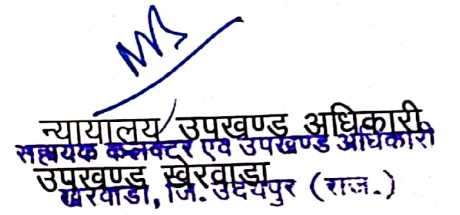 न्यायालय उपखण्ड अधिकारी
सहायक कलक्टर एवं उपखण्ड अधिकारी
उपखण्ड खेरवाडा
खेरवाडा, जि. उदयपुर (राज.)